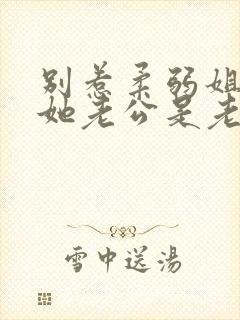 别惹柔弱姐
她老公是老
雪中送湯